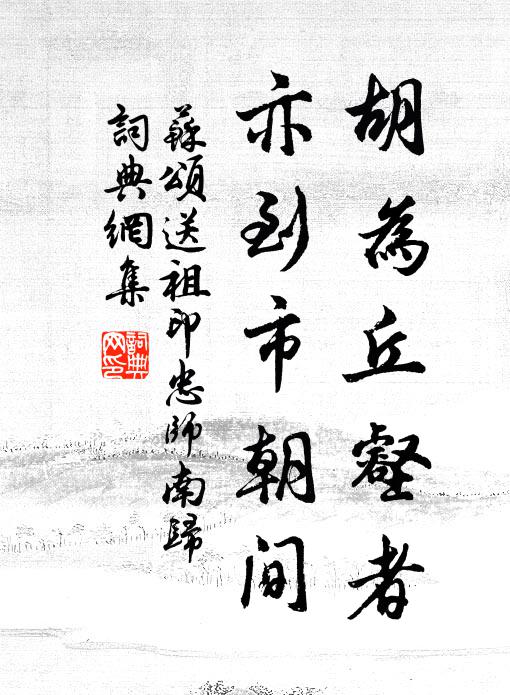 胡為丘壑者
亦到市朝間
蘇頌送祖印忠師南歸
詞典網集
詞典網印